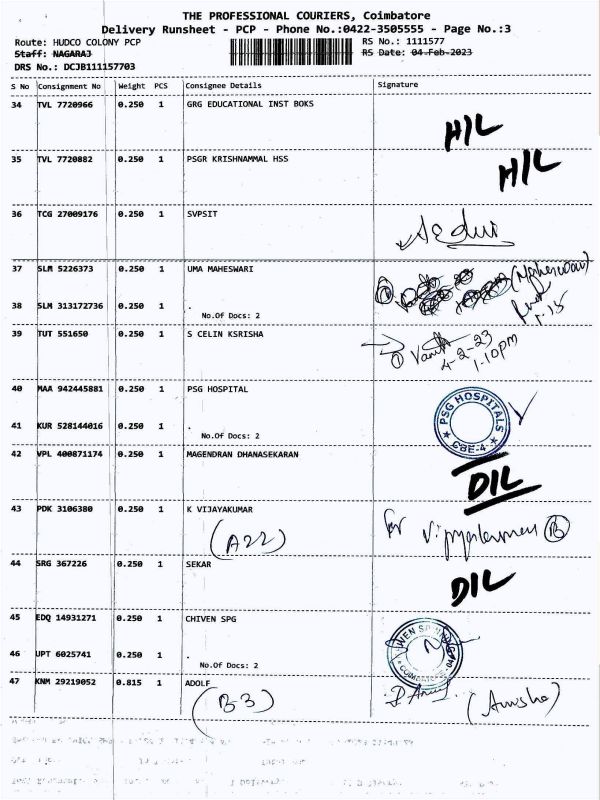 THE PROFESSIONAL COURIERS, Coimbatore
Delivery Runsheet - PCP - Phone No.:0422-3505555 - Page No.:3
Route: HUDCO COLONY PCP RS No.: 1111577
Staff: NAGARAJ RS Date: 04-Feb-2023
DRS No.: DCJB111157703
S No Consignment No Weight PCS Consignee Details Signature
34 TVL 7720966 0.250 1 GRG EDUCATIONAL INST BOKS
H/L
35 TVL 7720882 0.250 1 PSGR KRISHNAMMAL HSS
H/L
36 TCG 27009176 0.250 1 SVPSIT
37 SLM 5226373 0.250 1 UMA MAHESWARI
38 SLM 313172736 0.250 1 .
No.Of Docs: 2
1-15
39 TUT 551650 0.250 1 S CELIN KSRISHA
4-2-23
1.10pm
40 MAA 942445881 0.250 1 PSG HOSPITAL
PSG HOSPITALS
CBE-4
41 KUR 528144016 0.250 1 .
No.Of Docs: 2
42 VPL 400871174 0.250 1 MAGENDRAN DHANASEKARAN
D/L
43 PDK 3106380 0.250 1 K VIJAYAKUMAR
(A22)
for
44 SRG 367226 0.250 1 SEKAR
D/L
45 EDQ 14931271 0.250 1 CHIVEN SPG
46 UPT 6025741 0.250 1 .
No.Of Docs: 2
47 KNM 29219052 0.815 1 ADOLF
(B-3)
(Anusha)